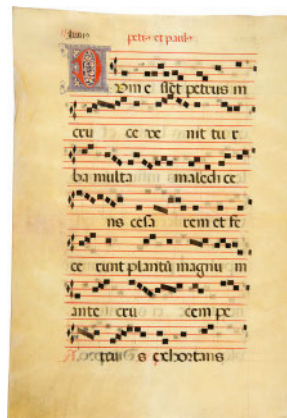 petrꝰ et paulꝰ
Dum e s̄set petrus in
cru ce ve nit tur
ba multa maledi ce
ns cesa rem et fe
ce runt planctū magnū
ante cru cem pe
trus exhortans